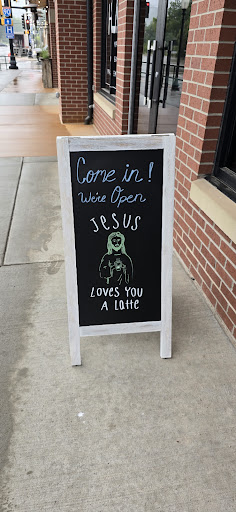 Come in!
We're Open
JESUS
Loves You
A Latte